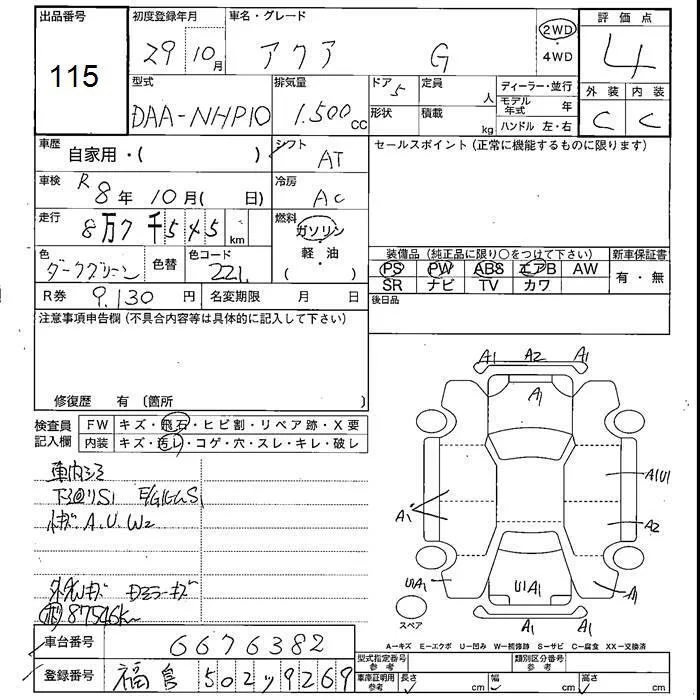 出品番号 初度登録年月 車名・グレード 評価点
115 29 10月 アクア G 2WD ・ 4WD 4
型式 排気量 ドア 5 定員 人 ディーラー・並行 外装 内装
DAA-NHP10 1.500 CC 形状 積載 kg モデル年式 年 C C
ハンドル 左・右
車歴 自家用・( ) シフト AT セールスポイント(正常に機能するものに限ります)
車検 R8年 10月( 日) 冷房 AC
走行 8万7千545km 燃料 ガソリン・軽・油 ( )
色 ダークグリーン 色替 色コード 221 装備品(純正品に限り○をつけて下さい) 新車保証書
PS PW ABS エアB AW 有・無
SR ナビ TV カワ
R券 9.130円 名変期限 月 日 後日品
注意事項申告欄(不具合内容等は具体的に記入して下さい)
修復歴 有 〔箇所 〕
検査員記入欄 FW キズ・飛石・ヒビ割・リペア跡・X要
内装 キズ・汚レ・コゲ・穴・スレ・キレ・破レ
A1 A2 A1
A1
車内シミ
下廻りS1
キズ A.U.W2
A1 A1U1
A2
U1A1 U1A1 A1
キズ ミラーキズ
87546k
スペア
A1 A1
A−キズ E−エクボ U−凹み W−補修跡 S−サビ C−腐食 XX−交換済
車台番号 6676382
型式指定番号 参考 類別区分番号 参考
登録番号 福島 502 ツ 9269
車庫証明用 参考 長さ cm 幅 cm 高さ cm